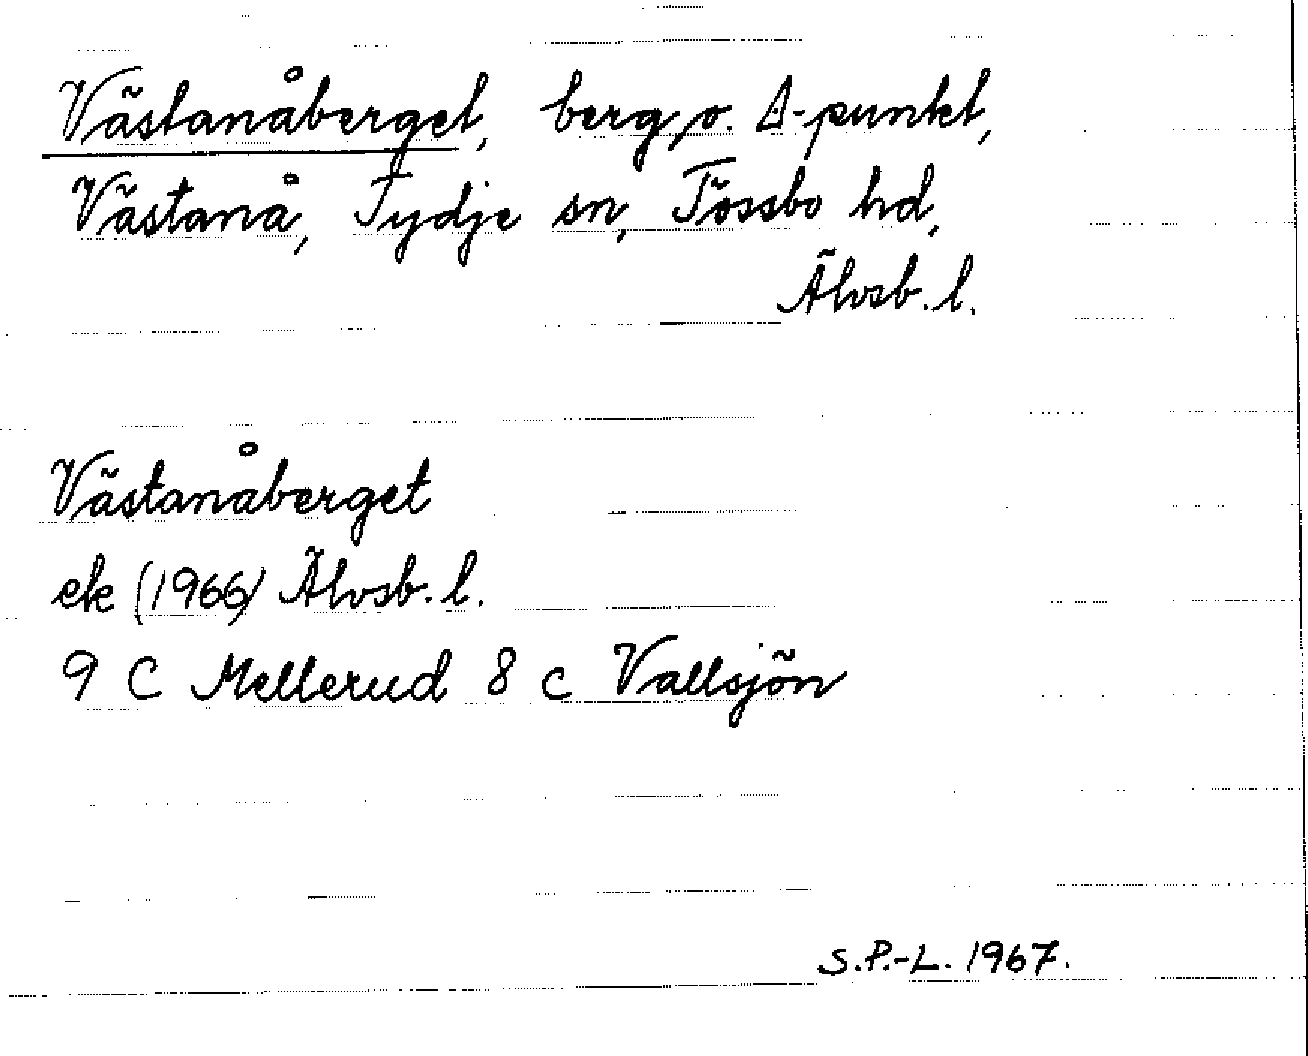 Västanåberget, berg o. Δ-punkt,
Västanå, Tydje sn, Tössbo hd,
Älvsb. l.
Västanåberget
ek (1966) Älvsb. l.
9 C Mellerud 8 c Vallsjön
S.P.-L. 1967.